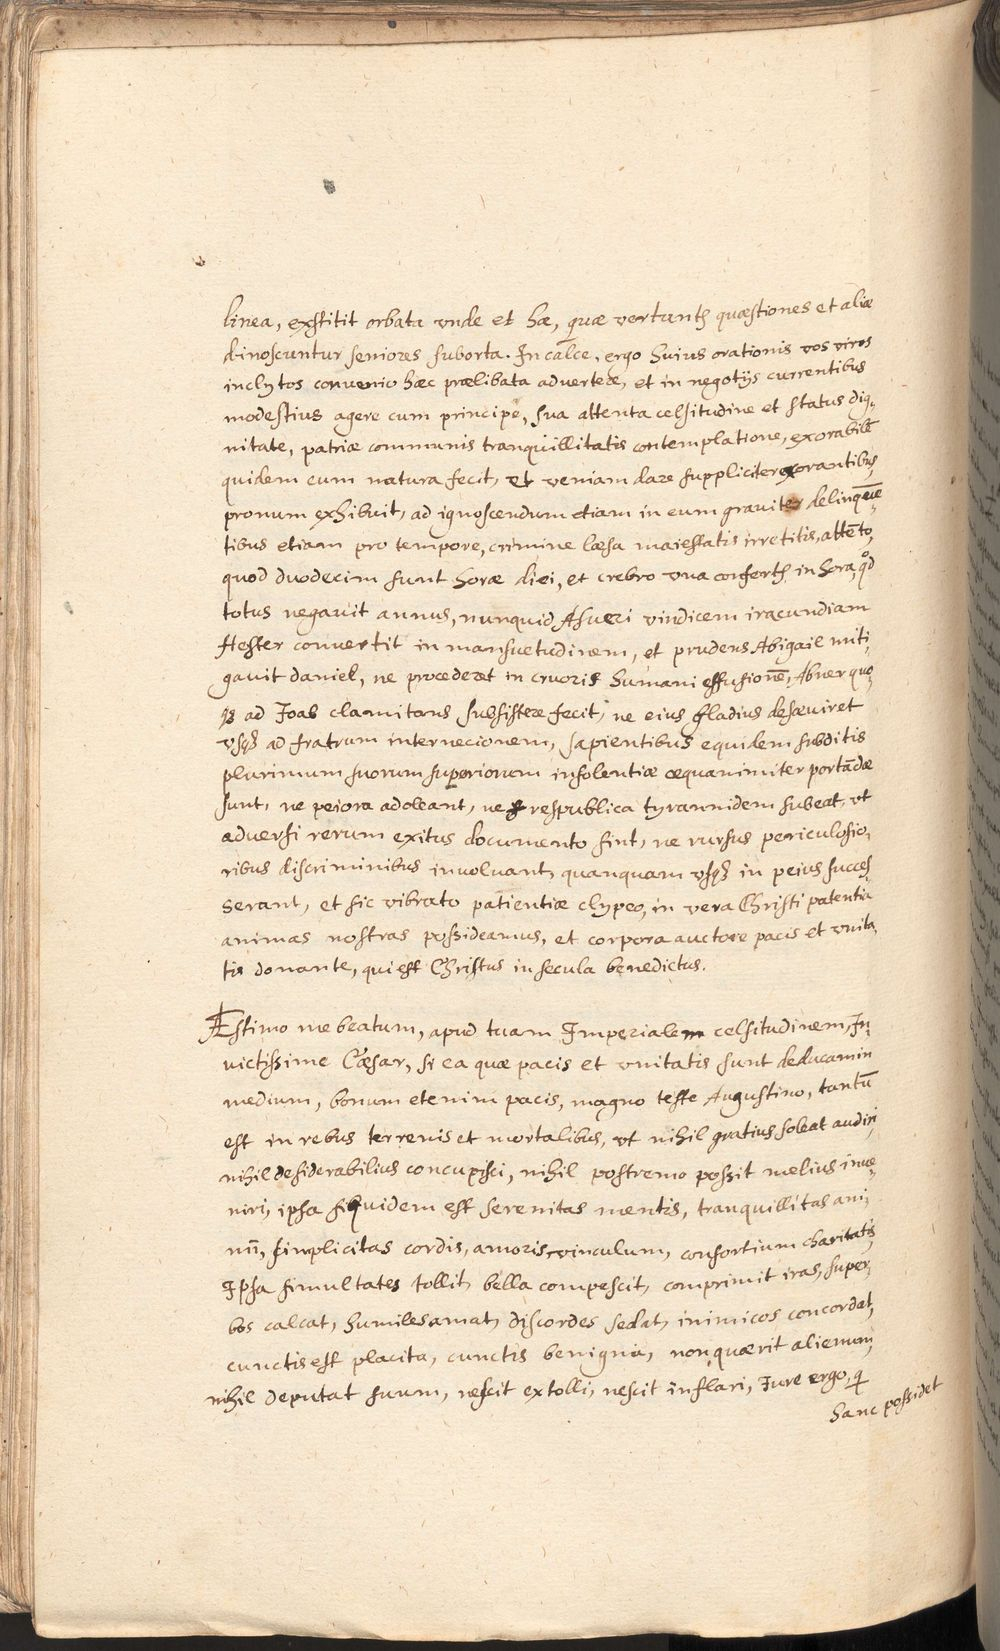 linea, exstitit orbata vnde et hæ, quæ vertuntꝫ quæstiones et aliæ
dinoscuntur seniores suborta. In calce, ergo huius orationis vos viros
inclytos convenio hæc prælibata advertere, et in negotijs currentibus
modestius agere cum principe, sua attenta celsitudine et status dig-
nitate, patriæ communis tranquillitatis contemplatione, exorabilē
quidem eum natura fecit, et veniam dare suppliciter exorantibus,
pronum exhibuit, ad ignoscendum etiam in eum graviter delinquē-
tibus etiam pro tempore, crimine læsa maiestatis irretitis, attēto,
quod duodecim sunt horæ diei, et crebro vna confertꝫ in hora, qd̊
totus negavit annus, nunquid Asueri vindicem iracundiam
Hester convertit in mansuetudinem, et prudens Abigail miti-
gavit daniel, ne procederet in cruoris humani effusionē, Abner quo-
qꝫ ad Joab clamitans subsistere fecit, ne eius gladius desæviret
vsqꝫ ad fratrum internecionem, sapientibus equidem subditis
plurimum suorum superiorum insolentiæ æquanimiter portādæ
sunt, ne peiora adoleant, ne respublica tyrannidem subeat, vt
adversi rerum exitus documento sint, ne rursus periculosio-
ribus discriminibus involvant, quanquam vsqꝫ in peius succes-
serant, et sic vibrato patientiæ clypeo, in vera Christi patentia
animas nostras possideamus, et corpora auctore pacis et vnita-
tis donante, qui est Christus in secula benedictus.
Æstimo me beatum, apud tuam Imperialem celsitudinem, In-
victissime Cæsar, si ea quæ pacis et vnitatis sunt deducam in
medium, bonum etenim pacis, magno teste Augustino, tantū
est in rebus terrenis et mortalibus, vt nihil gratius soleat audiri
nihil desiderabilius concupisci, nihil postremo possit melius inve-
niri, ipsa siquidem est serenitas mentis, tranquillitas ani-
mi, simplicitas cordis, amoris vinculum, consortium charitatis,
Ipsa simultates tollit, bella compescit, comprimit iras, super-
bos calcat, humiles amat, discordes sedat, inimicos concordat,
cunctis est placita, cunctis benigna, non quærit alienum,
nihil deputat suum, nescit extolli, nescit inflari, Iure ergo, q̄
hanc possidet